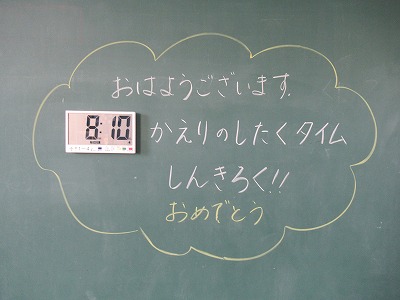 おはようございます。
8:10 かえりのしたくタイム
しんきろく!!
おめでとう